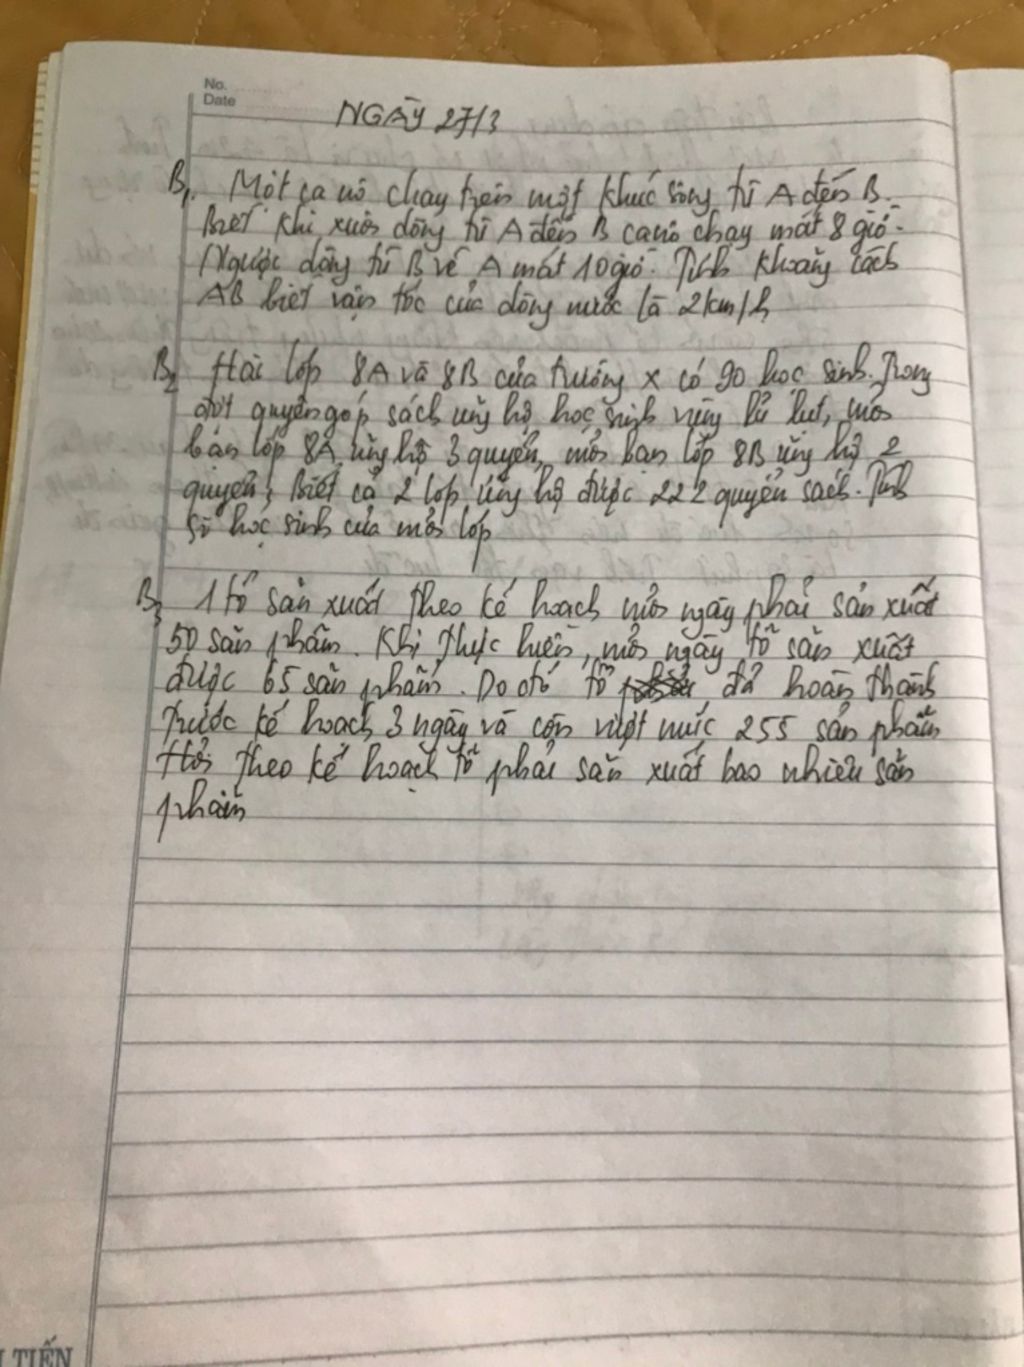 No.
Date
NGÀY 27/3
B1. Một ca nô chạy trên một khúc sông từ A đến B.
Biết khi xuôi dòng từ A đến B canô chạy mất 8 giờ.
Ngược dòng từ B về A mất 10 giờ. Tính khoảng cách
AB biết vận tốc của dòng nước là 2km/h
B2 Hai lớp 8A và 8B của trường x có 90 học sinh. Trong
đợt quyên góp sách ủng hộ học sinh vùng lũ lụt, mỗi
bạn lớp 8A ủng hộ 3 quyển, mỗi bạn lớp 8B ủng hộ 2
quyển, Biết cả 2 lớp ủng hộ được 222 quyển sách. Tính
số học sinh của mỗi lớp
B3 1 tổ sản xuất theo kế hoạch mỗi ngày phải sản xuất
50 sản phẩm. Khi thực hiện, mỗi ngày tổ sản xuất
được 65 sản phẩm. Do đó tổ đã hoàn thành
trước kế hoạch 3 ngày và còn vượt mức 255 sản phẩm
Hỏi theo kế hoạch tổ phải sản xuất bao nhiêu sản
phẩm
TIẾN